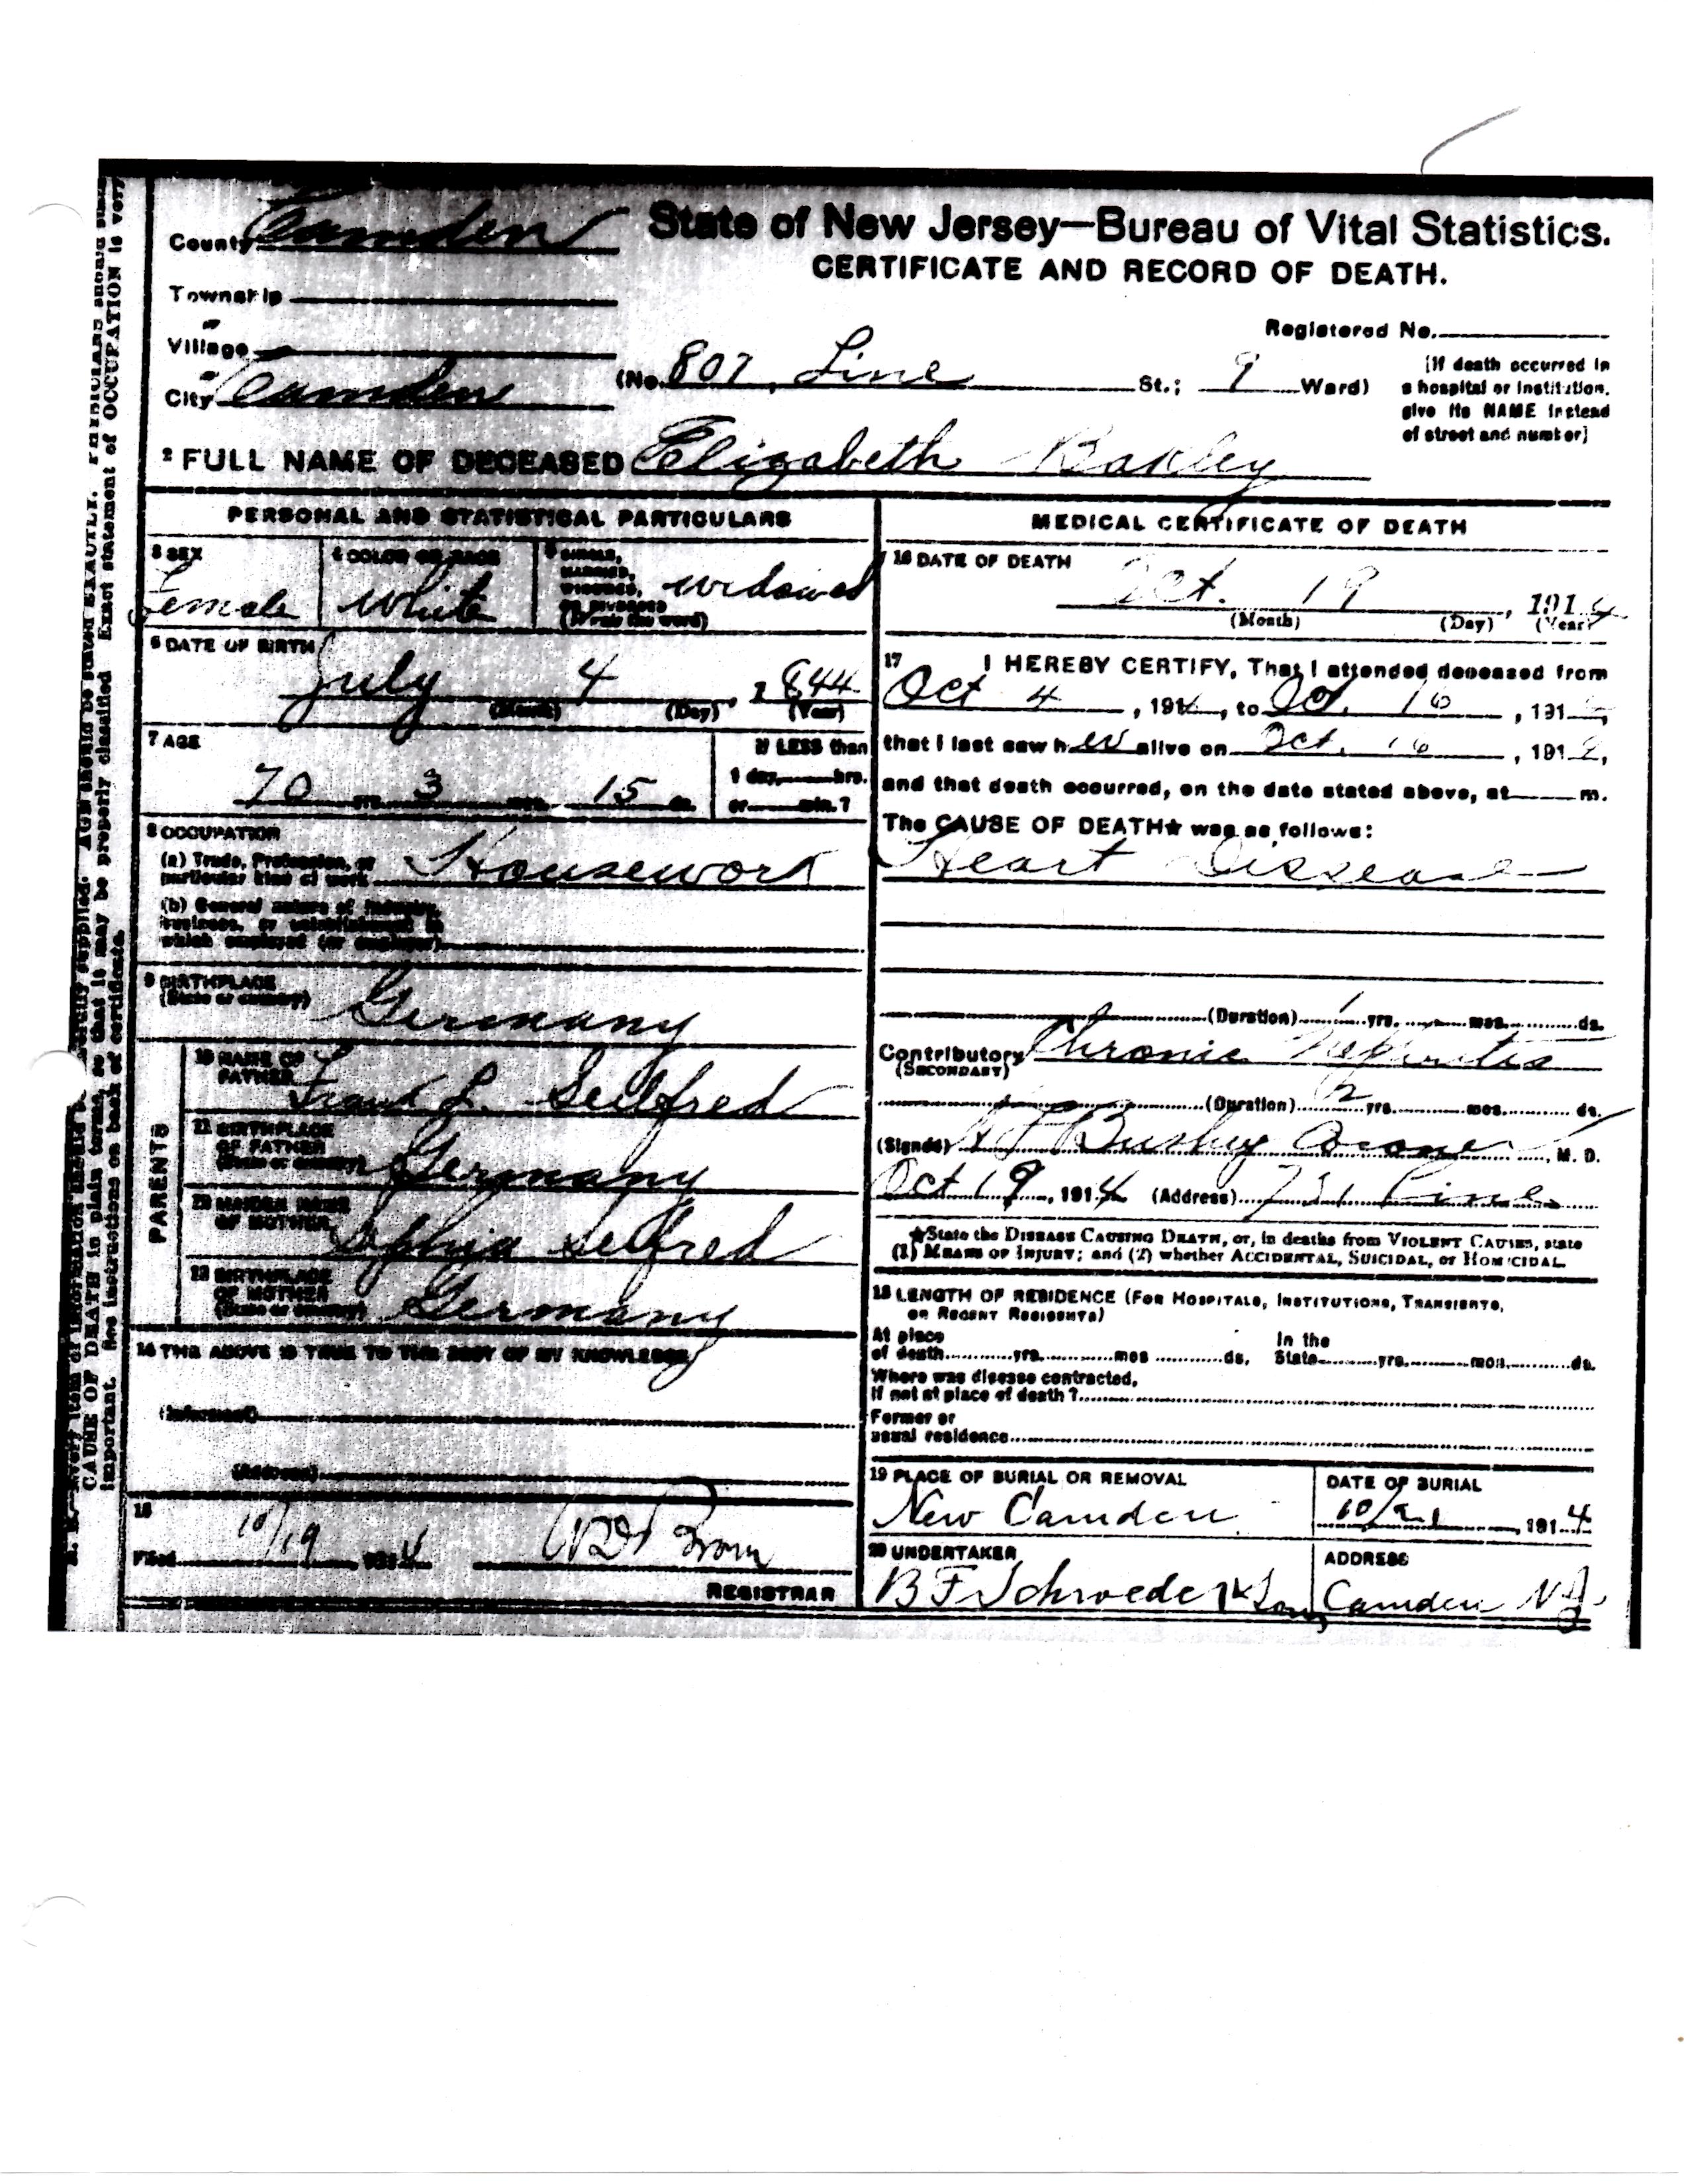 State of New Jersey—Bureau of Vital Statistics.
CERTIFICATE AND RECORD OF DEATH.
County Camden
Township
or
Village
or
City Camden
Registered No.
(No. 807, Line St.; 9 Ward)
[If death occurred in
a hospital or institution,
give its NAME instead
of street and number]
2 FULL NAME OF DECEASED Elizabeth Baxley
PERSONAL AND STATISTICAL PARTICULARS
3 SEX
Female
4 COLOR OR RACE
White
5 SINGLE,
MARRIED,
WIDOWED,
OR DIVORCED
(Write the word)
widowed
6 DATE OF BIRTH
July 4, 1844
(Month) (Day) (Year)
7 AGE
70 yrs. 3 mos. 15 ds.
If LESS than
1 day, hrs.
or min.?
8 OCCUPATION
(a) Trade, Profession, or
particular kind of work Housework
(b) General nature of industry,
business, or establishment in
which employed (or employer)
9 BIRTHPLACE
(State or country)
Germany
PARENTS
10 NAME OF
FATHER
Frank L. Seilfred
11 BIRTHPLACE
OF FATHER
(State or country)
Germany
12 MAIDEN NAME
OF MOTHER
Sophia Seilfred
13 BIRTHPLACE
OF MOTHER
(State or country)
Germany
14 THE ABOVE IS TRUE TO THE BEST OF MY KNOWLEDGE
(Informant)
(Address)
15
Filed 10/19, 1914
Brown
REGISTRAR
MEDICAL CERTIFICATE OF DEATH
16 DATE OF DEATH
Oct. 19, 1914
(Month) (Day) (Year)
17 I HEREBY CERTIFY, That I attended deceased from
Oct 4, 1914, to Oct. 16, 191
that I last saw her alive on Oct. 16, 191
and that death occurred, on the date stated above, at m.
The CAUSE OF DEATH★ was as follows:
Heart Dissease
(Duration) 1 yrs. mos. ds.
Contributory Chronic Nephritis
(SECONDARY)
(Duration) 2 yrs. mos. ds.
(Signed) Bushey Coroner, M. D.
Oct 19, 1914 (Address) 731 Pine
★State the DISEASE CAUSING DEATH, or, in deaths from VIOLENT CAUSES, state
(1) MEANS OF INJURY; and (2) whether ACCIDENTAL, SUICIDAL, or HOMICIDAL.
18 LENGTH OF RESIDENCE (FOR HOSPITALS, INSTITUTIONS, TRANSIENTS,
OR RECENT RESIDENTS)
At place
of death yrs. mos ds. In the
State yrs. mos. ds.
Where was disease contracted,
if not at place of death?
Former or
usual residence
19 PLACE OF BURIAL OR REMOVAL
New Camden
DATE OF BURIAL
10/21, 1914
20 UNDERTAKER
B F Schroeder & Son,
ADDRESS
Camden NJ.
CAUSE OF DEATH in plain terms, so that it may be properly classified. Exact statement of OCCUPATION is very
important. See instructions on back of certificate.